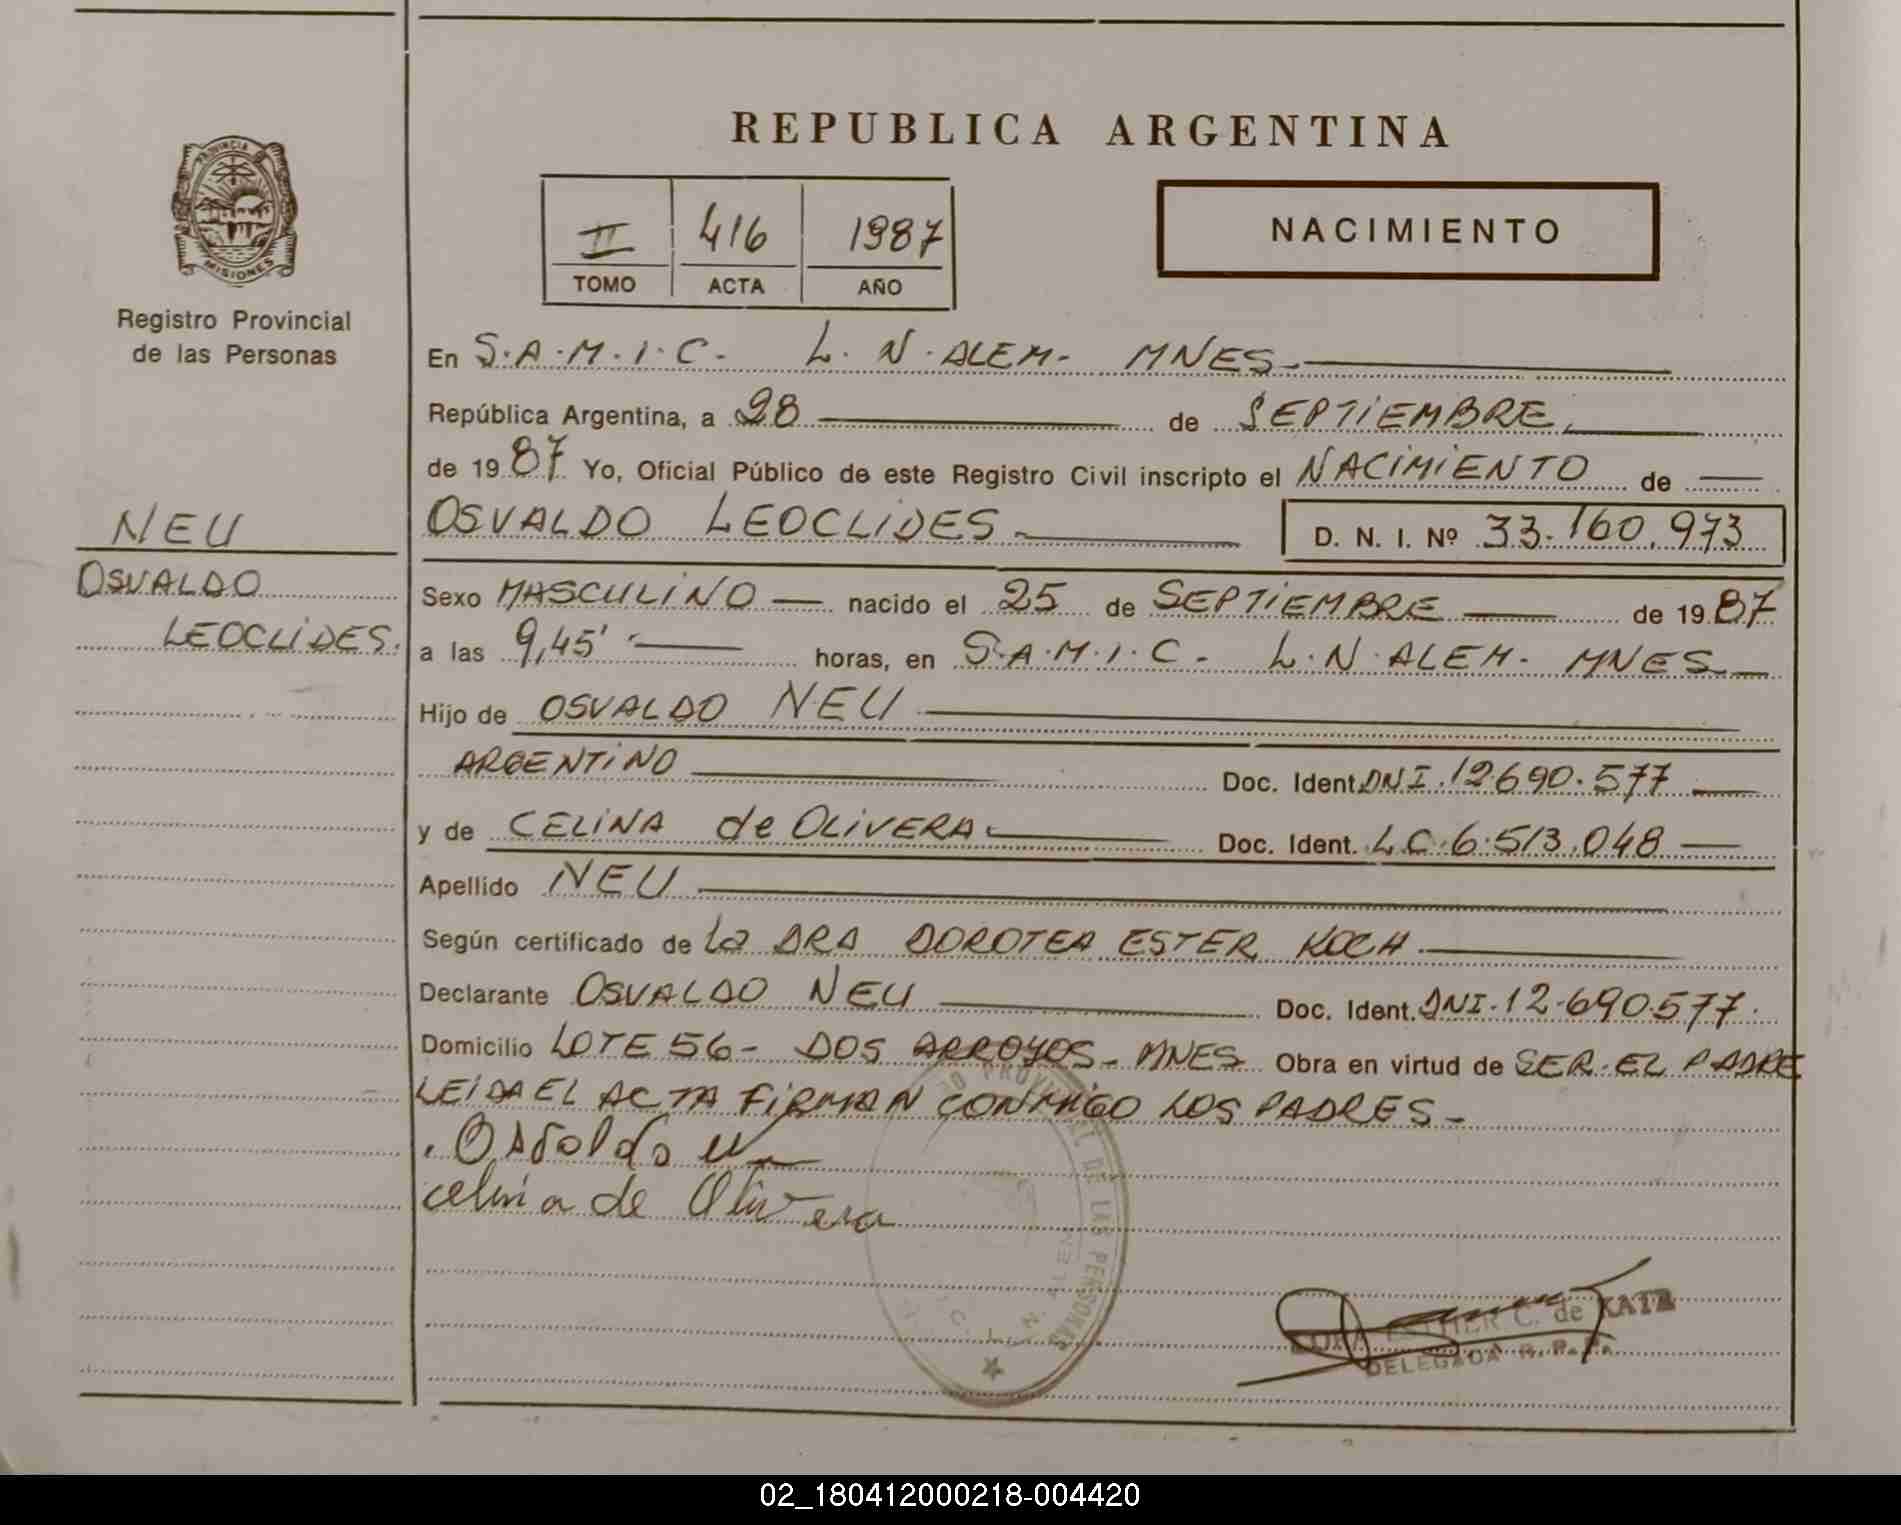 REPUBLICA ARGENTINA
PROVINCIA
MISIONES
Registro Provincial
de las Personas
II 416 1987
TOMO ACTA AÑO
NACIMIENTO
NEU
OSVALDO
LEOCLIDES.
En S.A.M.I.C. L. N. ALEM- MNES-
República Argentina, a 28 de SEPTIEMBRE
de 1987 Yo, Oficial Público de este Registro Civil inscripto el NACIMIENTO de
OSVALDO LEOCLIDES D. N. I. Nº 33.160.973
Sexo MASCULINO nacido el 25 de SEPTIEMBRE de 1987
a las 9,45' horas, en S.A.M.I.C- L.N.ALEM- MNES
Hijo de OSVALDO NEU
ARGENTINO Doc. Ident. DNI.12.690.577
y de CELINA de OLIVERA Doc. Ident. LC.6.513.048
Apellido NEU
Según certificado de La DRA DOROTEA ESTER KOCH
Declarante OSVALDO NEU Doc. Ident. DNI.12.690.577.
Domicilio LOTE 56- DOS ARROYOS- MNES Obra en virtud de SER EL PADRE
LEIDA EL ACTA FIRMAN CONMIGO LOS PADRES-
Osvaldo
celina de Olivera
PROVINCIAL DE LAS PERSONAS
N. ALEM
ESTHER C. de KATZ
DELEGADA R. P. P.
02_180412000218-004420